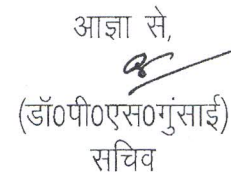 आज्ञा से,
(डॉ0पी0एस0गुंसाई)
सचिव